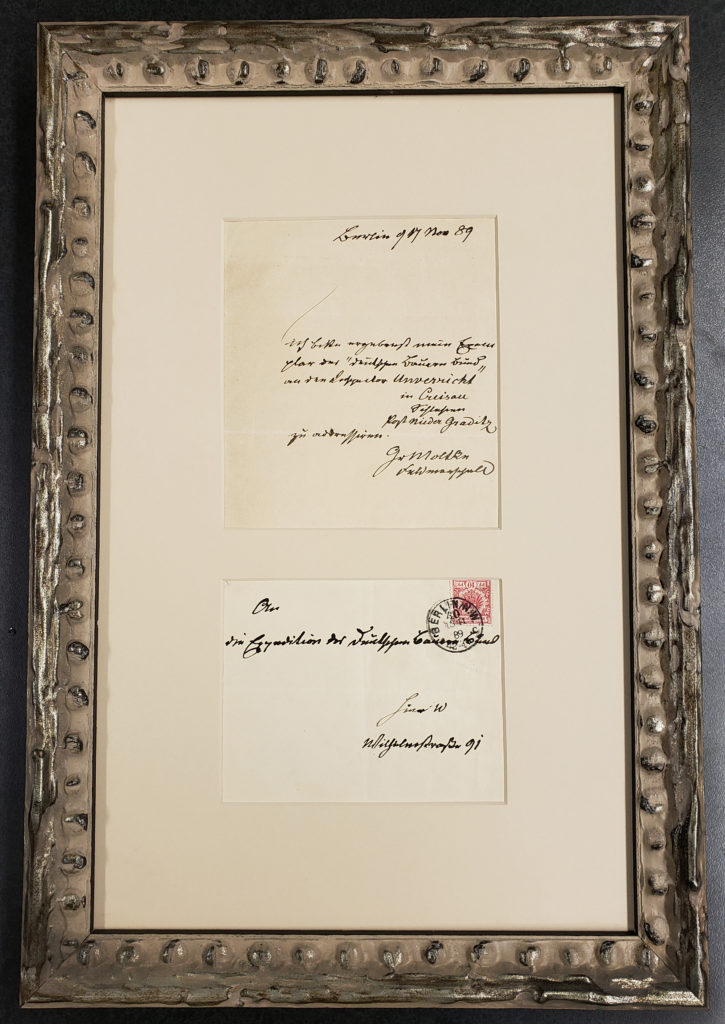 Berlin 9 17 Nov 89
ich bitte ergebenst mein Exem
plar des "deutschen Bauern Bund"
an den Inspector Unverricht
in Creisau
Schlesien
Post Nieder Graditz
zu addressiren.
Gr Moltke
Feldmarschall
An
die Expedition des Deutschen Bauern
hier W
Wilhelmstraße 91
BERLIN N.W.
89